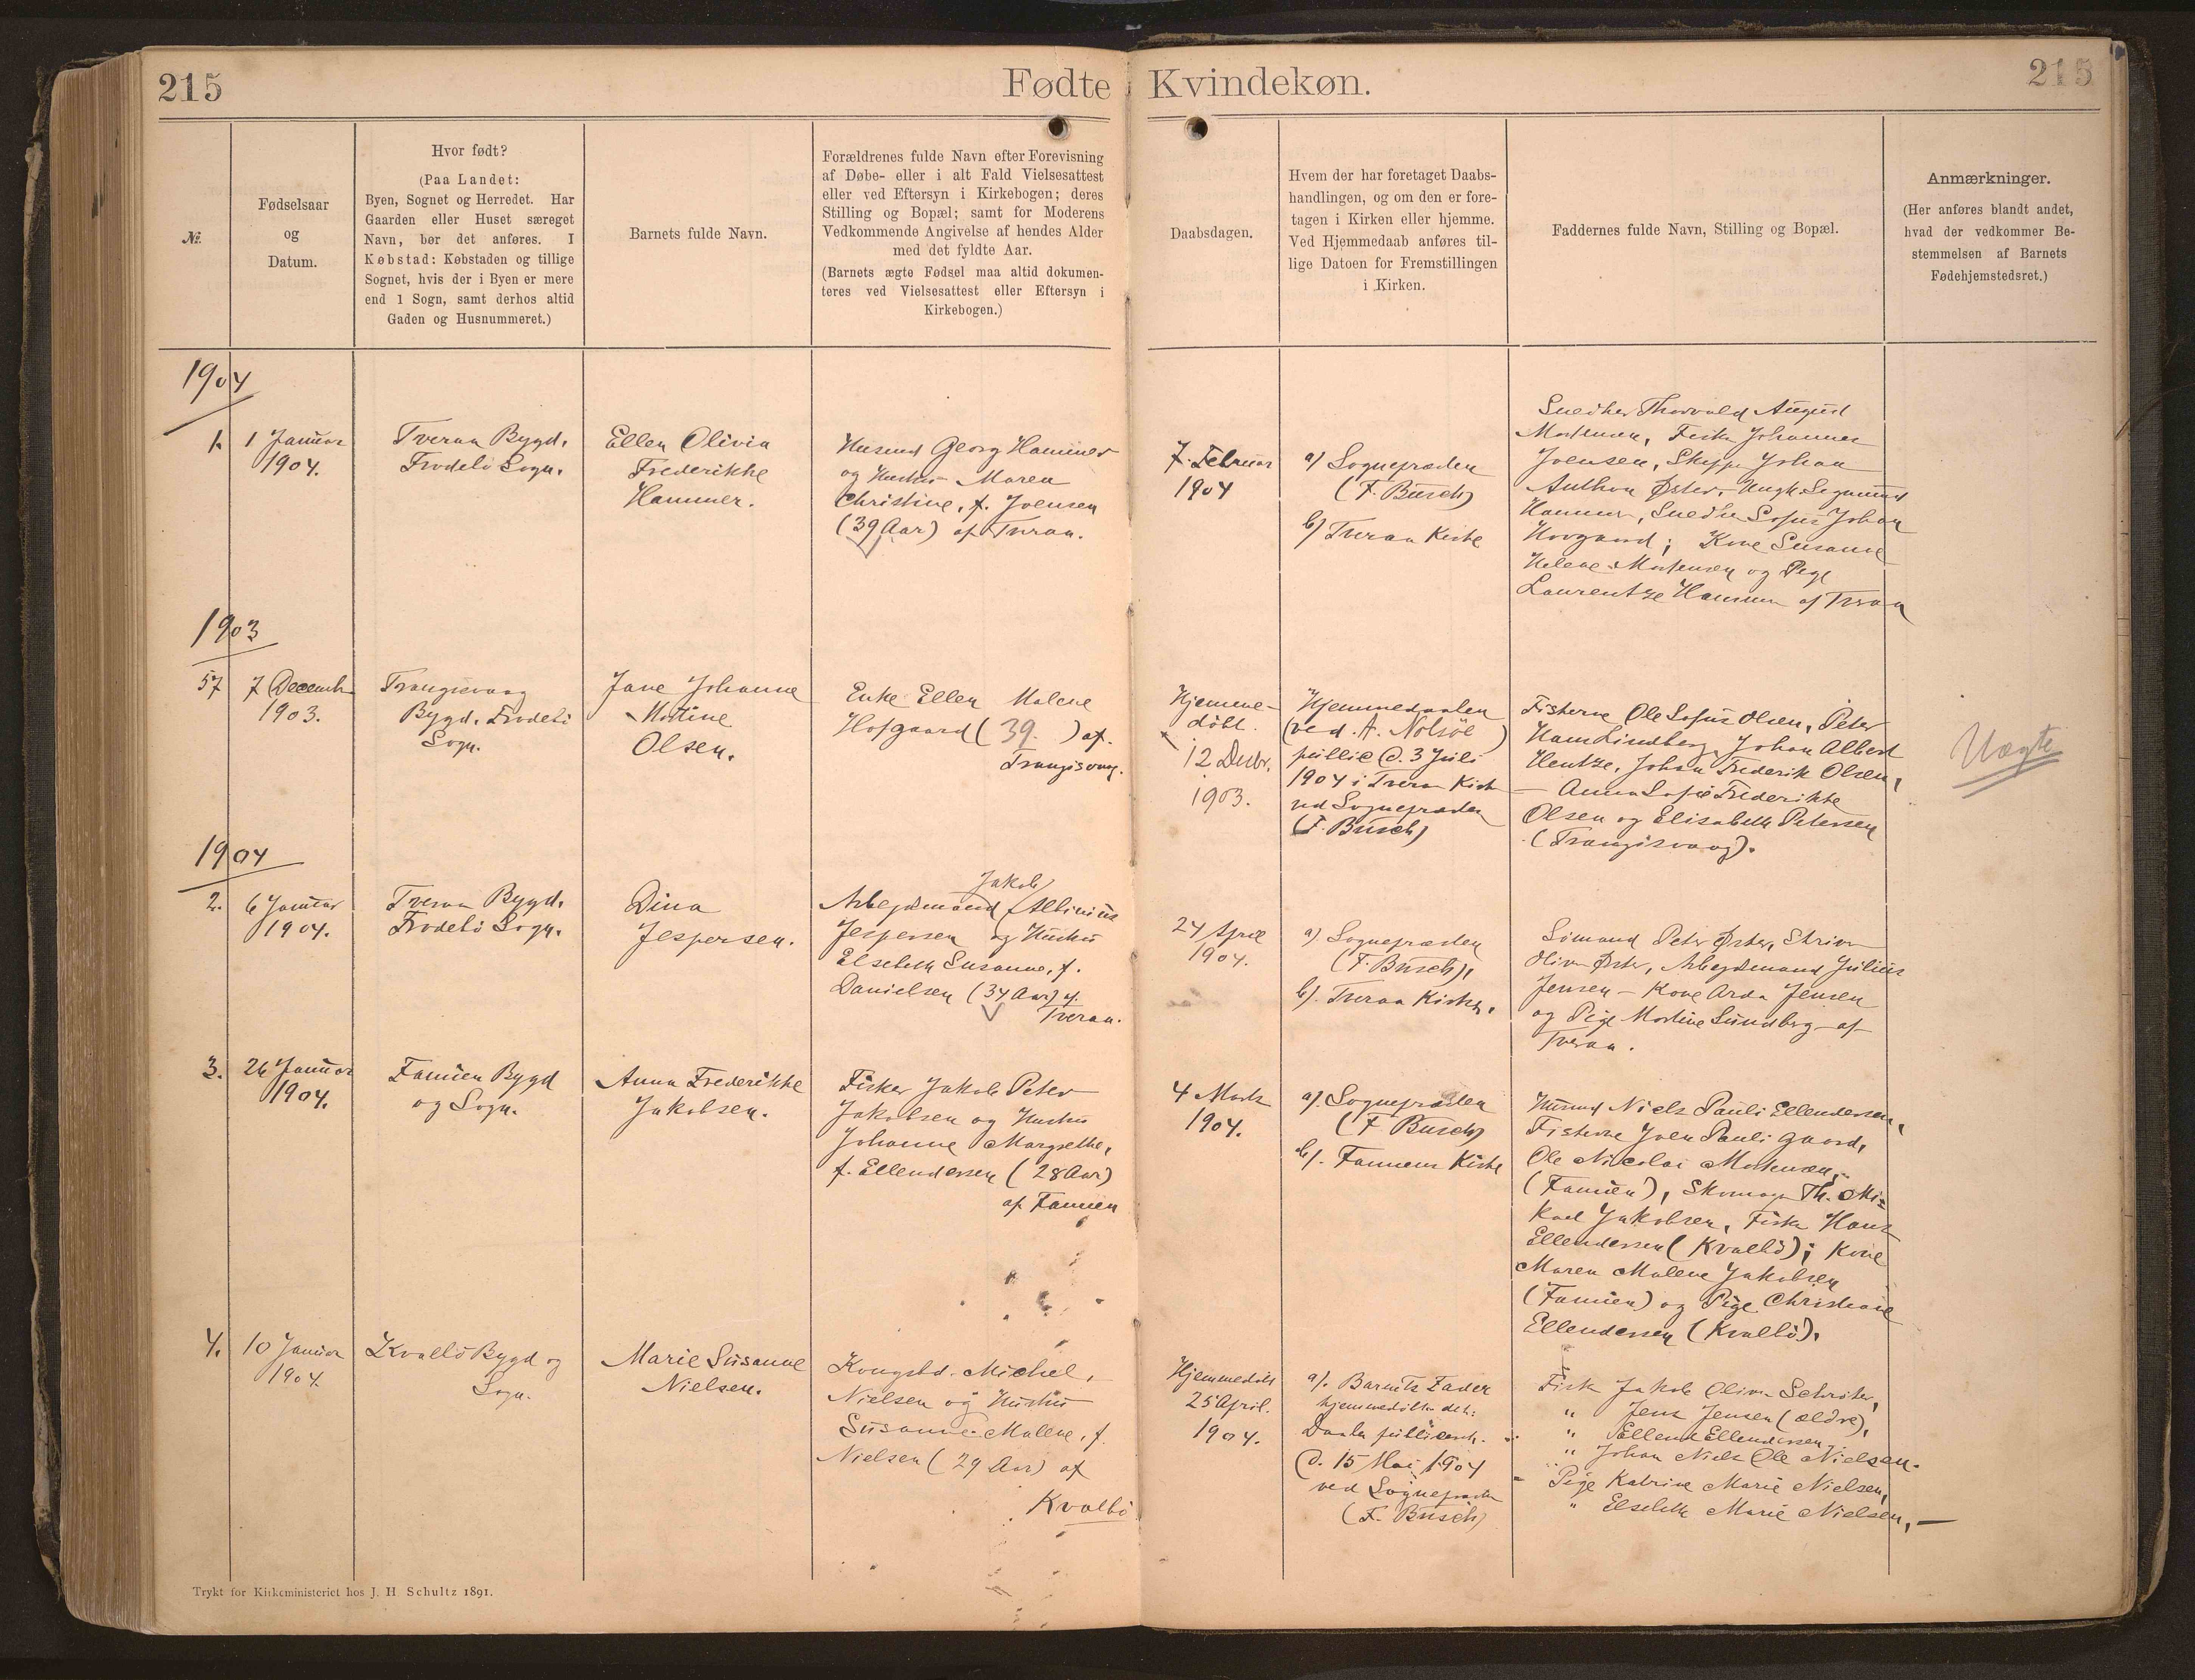 215
Fødte Kvindekøn.
215
№
Fødselsaar
og
Datum.
Hvor født?
(Paa Landet:
Byen, Sognet og Herredet. Har
Gaarden eller Huset særeget
Navn, bør det anføres. I
Købstad: Købstaden og tillige
Sognet, hvis der i Byen er mere
end 1 Sogn, samt derhos altid
Gaden og Husnummeret.)
Barnets fulde Navn.
Forældrenes fulde Navn efter Forevisning
af Døbe- eller i alt Fald Vielsesattest
eller ved Eftersyn i Kirkebogen; deres
Stilling og Bopæl; samt for Moderens
Vedkommende Angivelse af hendes Alder
med det fyldte Aar.
(Barnets ægte Fødsel maa altid dokumen-
teres ved Vielsesattest eller Eftersyn i
Kirkebogen.)
Daabsdagen.
Hvem der har foretaget Daabs-
handlingen, og om den er fore-
tagen i Kirken eller hjemme.
Ved Hjemmedaab anføres til-
lige Datoen for Fremstillingen
i Kirken.
Faddernes fulde Navn, Stilling og Bopæl.
Anmærkninger.
(Her anføres blandt andet,
hvad der vedkommer Be-
stemmelsen af Barnets
Fødehjemstedsret.)
1904
1.
1 Januar
1904.
Tveraa Bygd.
Frodebö Sogn.
Ellen Olivia
Frederikke
Hammer.
Husmd Georg Hammer
og Hustru Maren
Christine, f. Joensen
(39 Aar) af Tveraa.
7. Februar
1904
a) Sognepræsten
(F. Busch)
b) Tveraa Kirke
Snedker Thorvald August
Mortensen, Fisker Johannes
Joensen, Skipper Johan
Anthon Öster, Ungk. Sigmund
Hammer, Snedker Sofus Johan
Hovgaard; Kone Susanne
Helene Mortensen og Pige
Laurentze Hammer af Tveraa
1903
57
7 Decemb
1903.
Trangisvaag
Bygd. Frodebö
Sogn.
Jane Johanne
Mortine
Olsen.
Enke Ellen Malene
Hofgaard (39. ) af.
Trangisvaag.
Hjemme-
döbt.
12 Decbr.
1903.
Hjemmedaaben
(ved. A. Nolsöe )
public. d. 3 Juli
1904 i Tveraa Kirke
ved Sognepræsten
(F. Busch)
Fiskerne Ole Sofus Olsen, Peter
Ham Lindberg, Johan Albert
Hentze, Johan Frederik Olsen,
— Anna Sofie Frederikke
Olsen og Elisabeth Petersen
(Trangisvaag).
Uægte
1904
2.
6 Januar
1904.
Tveraa Bygd.
Frodebö Sogn.
Dina
Jespersen.
Jakob
Arbejdsmand Albinius
Jespersen og Hustru
Elsebeth Susanne, f.
Danielsen (34 Aar) af.
Tveraa.
24 April
1904.
a) Sognepræsten
(F. Busch),
b). Tveraa Kirke.
Sömand Peter Öster, Skriver
Oliver Öster, Arbejdsmand Julius
Jensen — Kone Arda Jensen
og Pige Mortine Lundberg — af
Tveraa.
3.
26 Januar
1904.
Famien Bygd
og Sogn.
Anna Frederikke
Jakobsen.
Fisker Jakob Peter
Jakobsen og Hustru
Johanne Margrethe,
f. Ellendersen (28 Aar)
af Famien
4 Marts
1904.
a). Sognepræsten
(F Busch)
b). Famiens Kirke
Husmd Niels Pauli Ellendersen,
Fiskerne Joen Pauli Gaard,
Ole Nicolai Mortensen,
(Famien), Skomager Th. Mi-
kael Jakobsen, Fisker Hans
Ellendersen (Kvalbö); Kone
Maren Malene Jakobsen
(Famien) og Pige Christiane
Ellendersen (Kvalbö).
4.
10 Januar
1904.
Kvalbö Bygd og
Sogn.
Marie Susanne
Nielsen.
Kongsbd. Michel
Nielsen og Hustru
Susanne Malene, f.
Nielsen (29 Aar) af
Kvalbö
Hjemmedöbt
25 April.
1904.
a). Barnets Fader
hjemmedöbte det:
Daaben publiceret.
d. 15 Mai 1904
ved Sognepræsten
(F. Busch)
Fisk Jakob Oliver Schröter,
" Jens Jensen (ældre),
" Ellend Ellendersen
" Johan Niels Ole Nielsen.
— Pige Katrine Marie Nielsen,
" Elsebeth Marie Nielsen, —
Trykt for Kirkeministeriet hos J. H Schultz 1891.